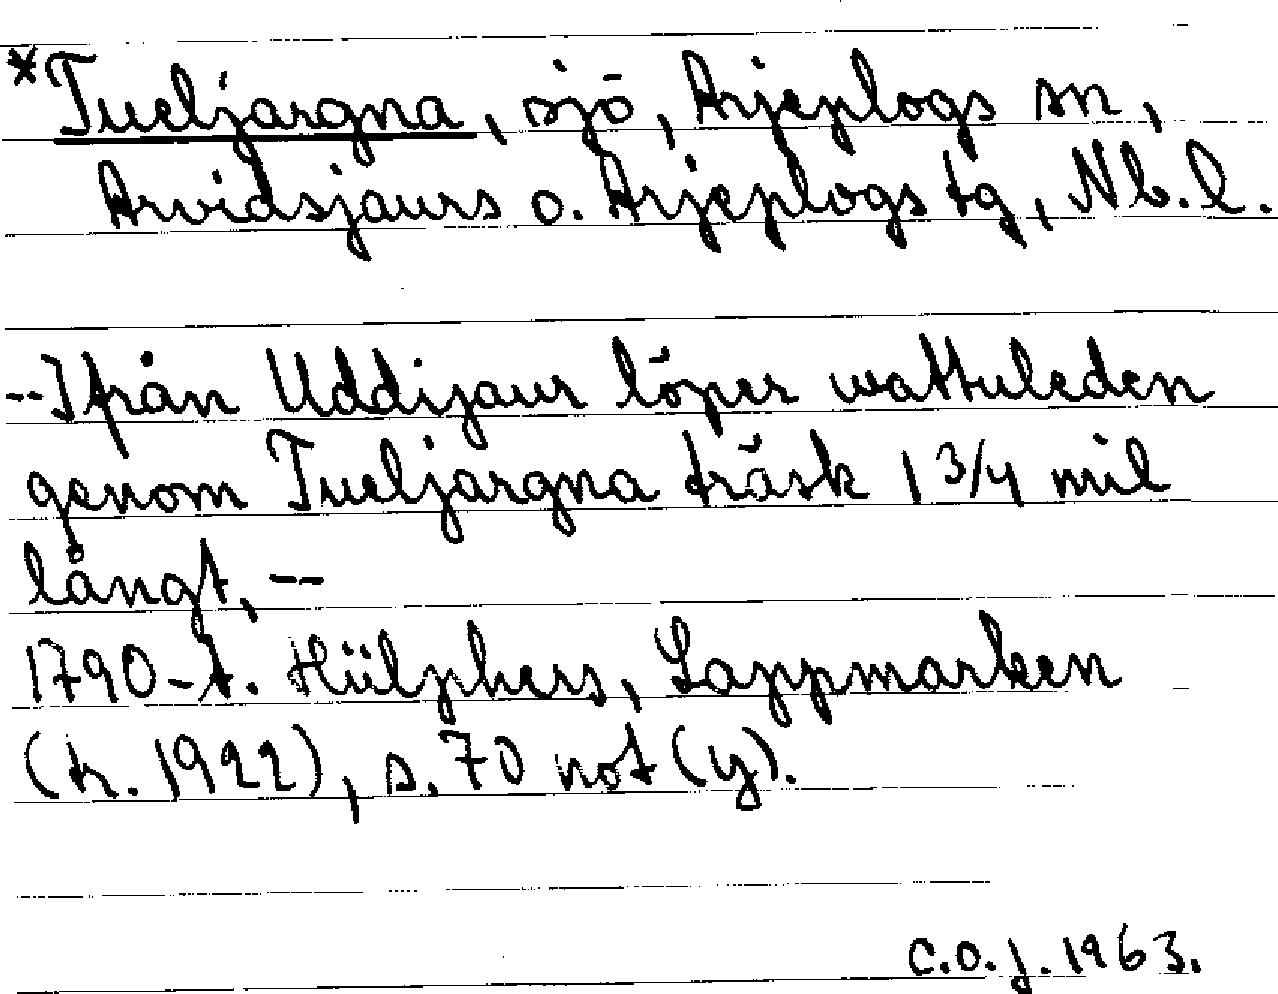 *Tueljargna, sjö, Arjeplogs sn,
Arvidsjaurs o. Arjeplogs tg, Nb. l.
--Ifrån Uddijaur löper wattuleden
genom Tueljargna träsk 1 3/4 mil
långt, --
1790-t. Hülphers, Lappmarken
(tr. 1922), s. 70 not (y).
C.O.J. 1963.